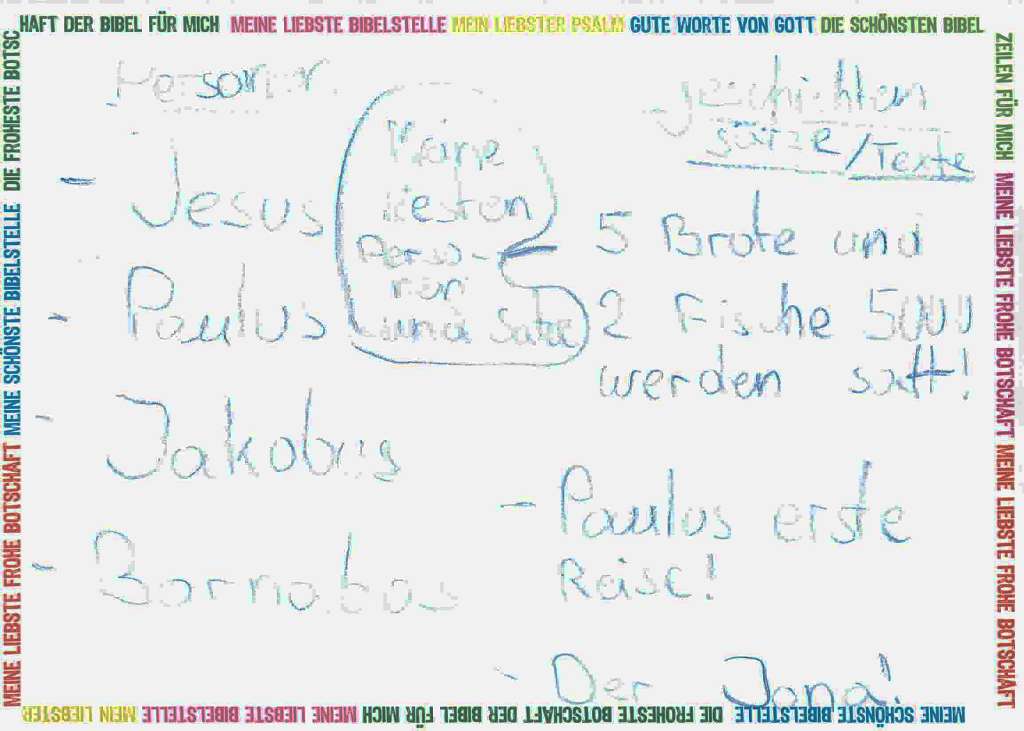 HAFT DER BIBEL FÜR MICH MEINE LIEBSTE BIBELSTELLE MEIN LIEBSTER PSALM GUTE WORTE VON GOTT DIE SCHÖNSTEN BIBEL
ZEILEN FÜR MICH MEINE LIEBSTE FROHE BOTSCHAFT MEINE LIEBSTE FROHE BOTSCHAFT
Personen
- Jesus
- Paulus
- Jakobus
- Barnabas
Meine
besten
Perso-
nen
und Sätze
geschichten
sätze/Texte
- 5 Brote und
2 Fische 5000
werden satt!
- Paulus erste
Reise!
- Der Jona!
MEINE SCHÖNSTE BIBELSTELLE DIE FROHESTE BOTSCHAFT DER BIBEL FÜR MICH MEINE LIEBSTE BIBELSTELLE MEIN LIEBSTER
MEINE LIEBSTE FROHE BOTSCHAFT MEINE SCHÖNSTE BIBELSTELLE DIE FROHESTE BOTSC